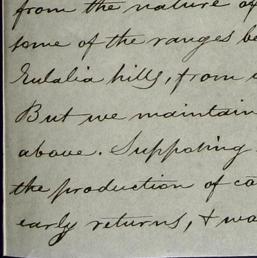 from the nature of
some of the ranges be
Eulalia hills, from
But we maintain
above. Supposing
the production of ca
early returns, & wa